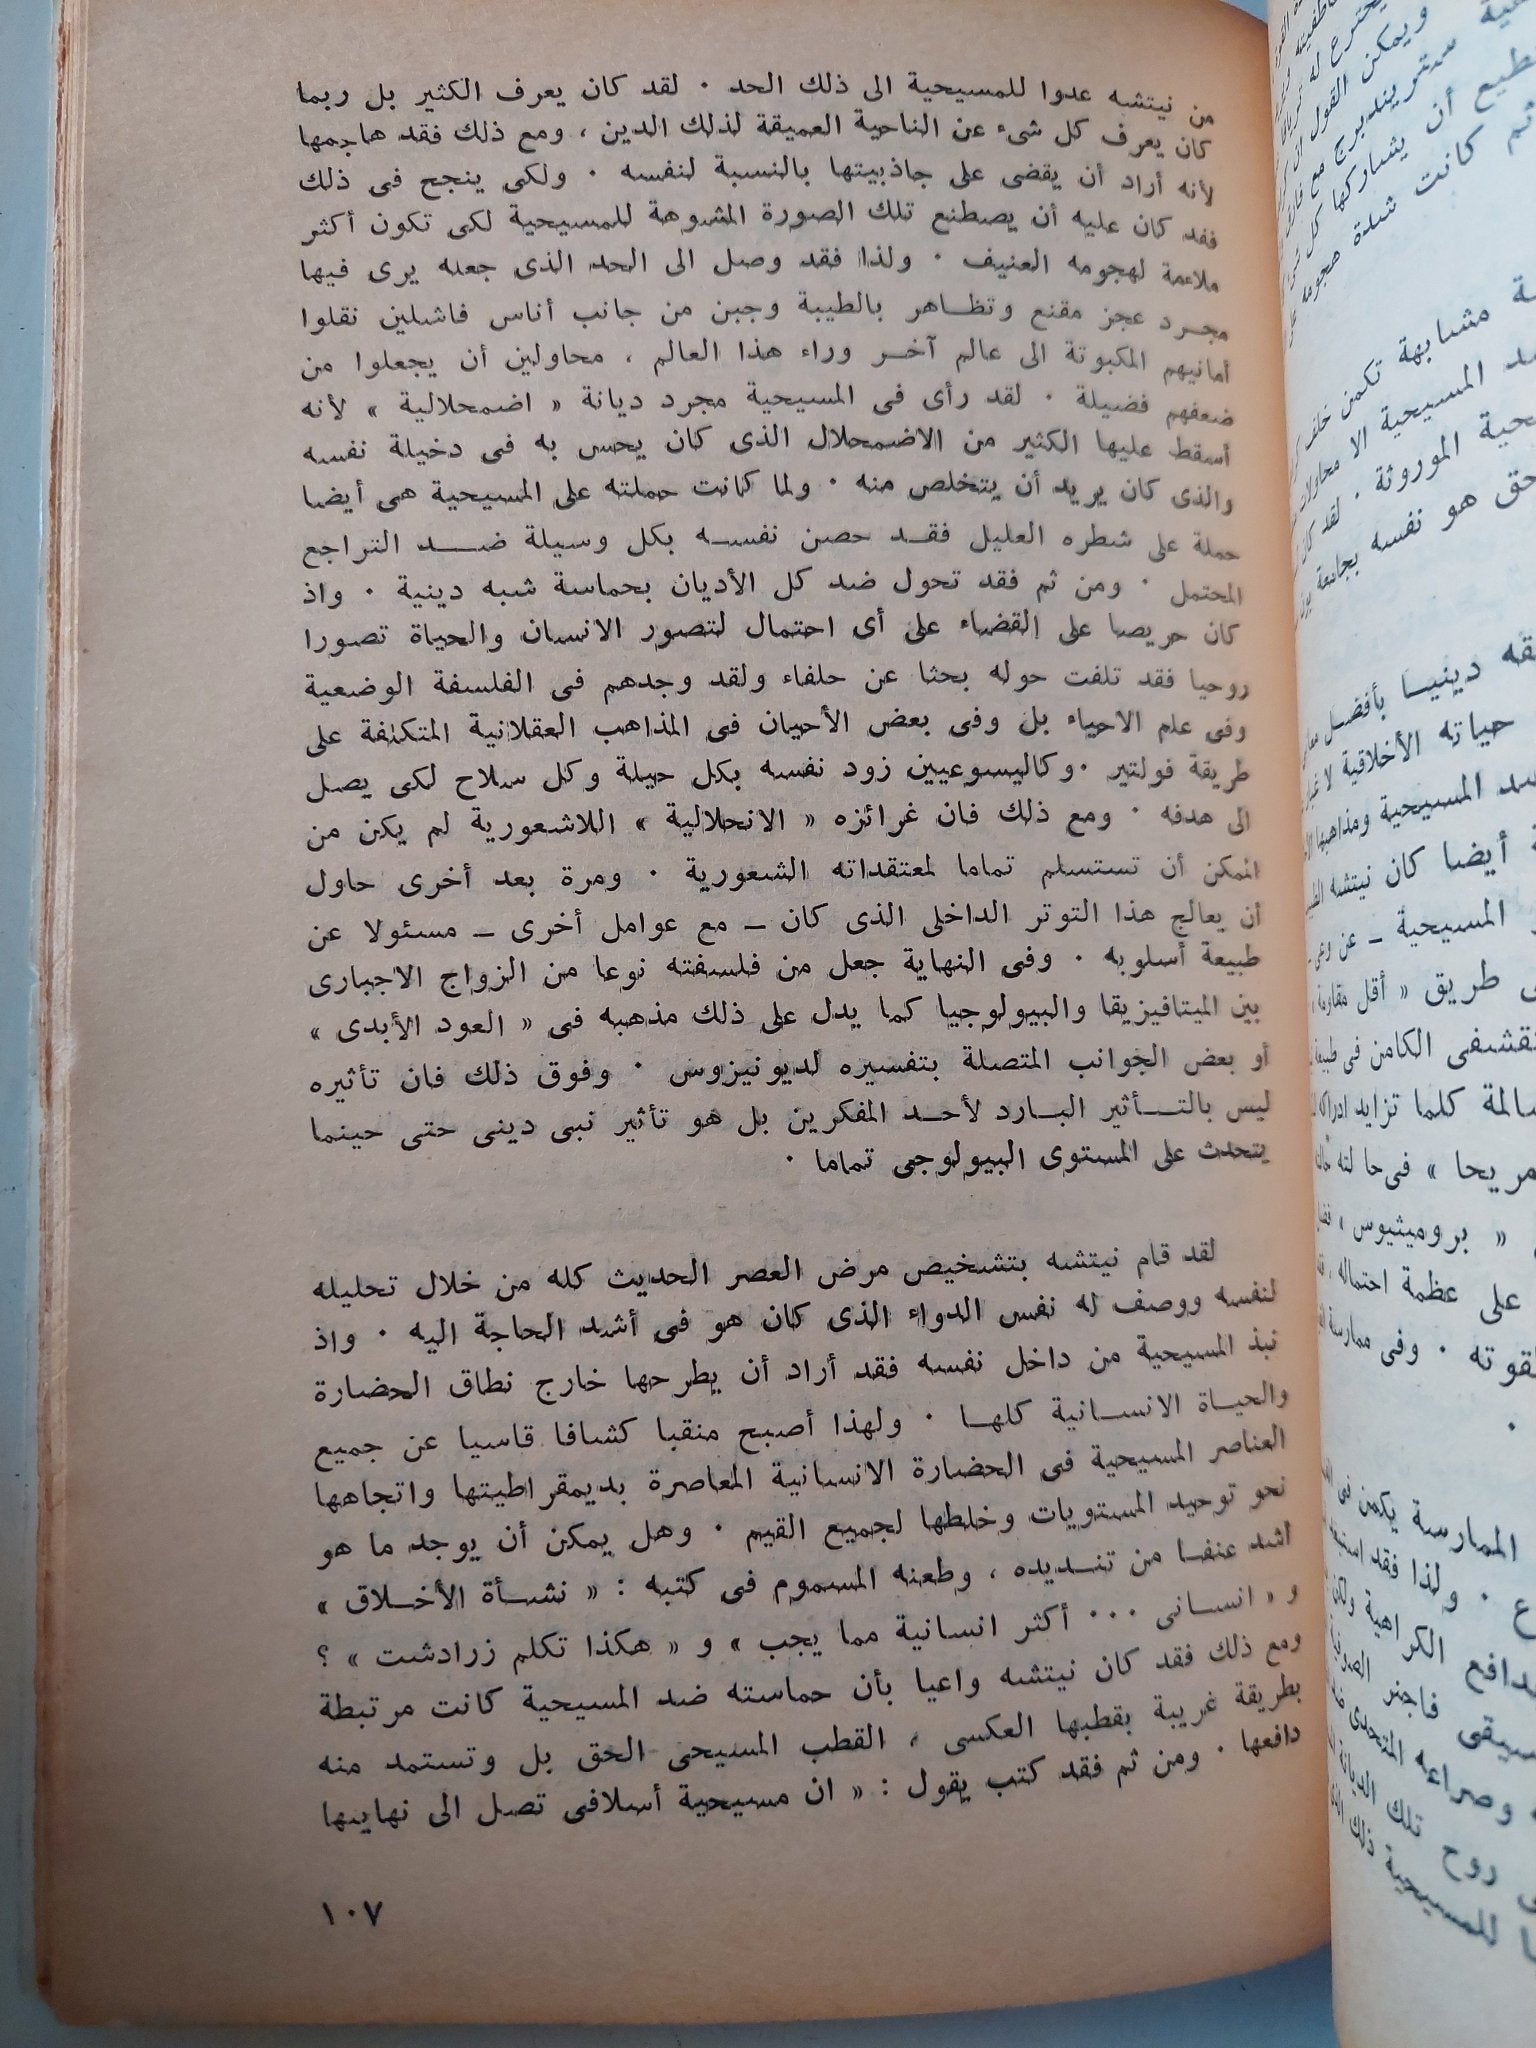 من نيتشه عدوا للمسيحية الى ذلك الحد · لقد كان يعرف الكثير بل ربما
كان يعرف كل شىء عن الناحية العميقة لذلك الدين ، ومع ذلك فقد هاجمها
لأنه أراد أن يقضى على جاذبيتها بالنسبة لنفسه · ولكى ينجح فى ذلك
فقد كان عليه أن يصطنع تلك الصورة المشوهة للمسيحية لكى تكون أكثر
ملاءمة لهجومه العنيف · ولذا فقد وصل الى الحد الذى جعله يرى فيها
مجرد عجز مقنع وتظاهر بالطيبة وجبن من جانب أناس فاشلين نقلوا
أمانيهم المكبوتة الى عالم آخر وراء هذا العالم ، محاولين أن يجعلوا من
ضعفهم فضيلة · لقد رأى فى المسيحية مجرد ديانة « اضمحلالية » لأنه
أسقط عليها الكثير من الاضمحلال الذى كان يحس به فى دخيلة نفسه
والذى كان يريد أن يتخلص منه · ولما كانت حملته على المسيحية هى أيضا
حملة على شطره العليل فقد حصن نفسه بكل وسيلة ضد التراجع
المحتمل · ومن ثم فقد تحول ضد كل الأديان بحماسة شبه دينية · واذ
كان حريصا على القضاء على أى احتمال لتصور الانسان والحياة تصورا
روحيا فقد تلفت حوله بحثا عن حلفاء ولقد وجدهم فى الفلسفة الوضعية
وفى علم الاحياء بل وفى بعض الأحيان فى المذاهب العقلانية المتكلفة على
طريقة فولتير · وكاليسوعيين زود نفسه بكل حيلة وكل سلاح لكى يصل
الى هدفه · ومع ذلك فان غرائزه « الانحلالية » اللاشعورية لم يكن من
الممكن أن تستسلم تماما لمعتقداته الشعورية · ومرة بعد أخرى حاول
أن يعالج هذا التوتر الداخلى الذى كان ـ مع عوامل أخرى ـ مسئولا عن
طبيعة أسلوبه · وفى النهاية جعل من فلسفته نوعا من الزواج الاجبارى
بين الميتافيزيقا والبيولوجيا كما يدل على ذلك مذهبه فى « العود الأبدى »
أو بعض الجوانب المتصلة بتفسيره لديونيزوس · وفوق ذلك فان تأثيره
ليس بالتأثير البارد لأحد المفكرين بل هو تأثير نبى دينى حتى حينما
يتحدث على المستوى البيولوجى تماما ·
لقد قام نيتشه بتشخيص مرض العصر الحديث كله من خلال تحليله
لنفسه ووصف له نفس الدواء الذى كان هو فى أشد الحاجة اليه · واذ
نبذ المسيحية من داخل نفسه فقد أراد أن يطرحها خارج نطاق الحضارة
والحياة الانسانية كلها · ولهذا أصبح منقبا كشافا قاسيا عن جميع
العناصر المسيحية فى الحضارة الانسانية المعاصرة بديمقراطيتها واتجاهها
نحو توحيد المستويات وخلطها لجميع القيم · وهل يمكن أن يوجد ما هو
أشد عنفا من تنديده ، وطعنه المسموم فى كتبه : « نشأة الأخلاق »
و « انسانى ··· أكثر انسانية مما يجب » و « هكذا تكلم زرادشت » ؟
ومع ذلك فقد كان نيتشه واعيا بأن حماسته ضد المسيحية كانت مرتبطة
بطريقة غريبة بقطبها العكسى ، القطب المسيحى الحق بل وتستمد منه
دافعها · ومن ثم فقد كتب يقول : « ان مسيحية أسلافى تصل الى نهايتها
١٠٧